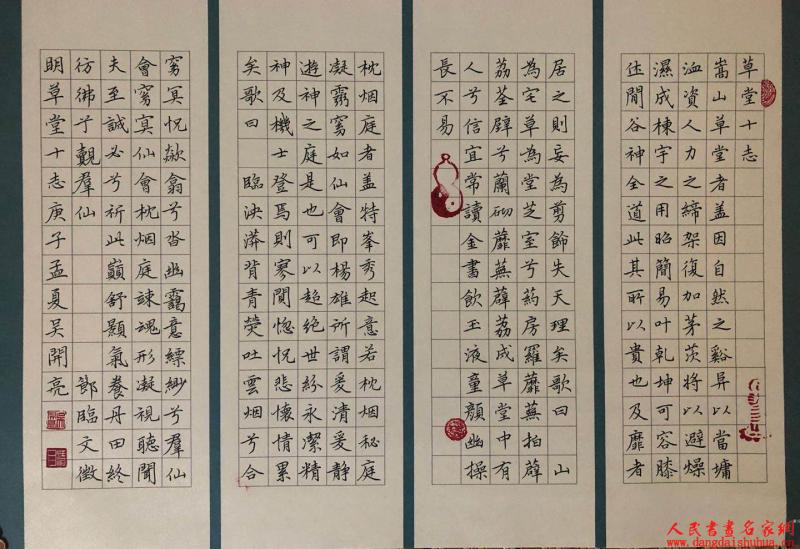 草堂十志
嵩山草堂者盖因自然之谿阜以當墉
洫資人力之締架復加茅茨將以避燥
濕成棟宇之用昭簡易叶乾坤可容膝
休閒谷神全道此其所以貴也及靡者
居之則妄為剪飾失天理矣歌曰 山
為宅草為堂芝室兮葯房羅蘼蕪拍薜
荔荃壁兮蘭砌蘼蕪薜荔成草堂中有
人兮信宜常讀金書飲玉液童顏幽操
長不易
枕烟庭者盖特峯秀起意若枕烟秘庭
凝靄窅如仙會即楊雄所謂爰清爰静
遊神之庭是也可以超絕世紛永潔精
神及機士登焉則寥闃惚怳悲懷情累
矣歌曰 臨泱漭背青熒吐雲烟兮合
窅冥怳歘翕兮沓幽靄意縹緲兮羣仙
會窅冥仙會枕烟庭竦魂形凝視聽聞
夫至誠必兮祈此巔舒顥氣養丹田終
彷彿兮覿羣仙 節臨文徵
明草堂十志庚子孟夏吴開亮
人民書畫名家網
www.dangdaishuhua.cn